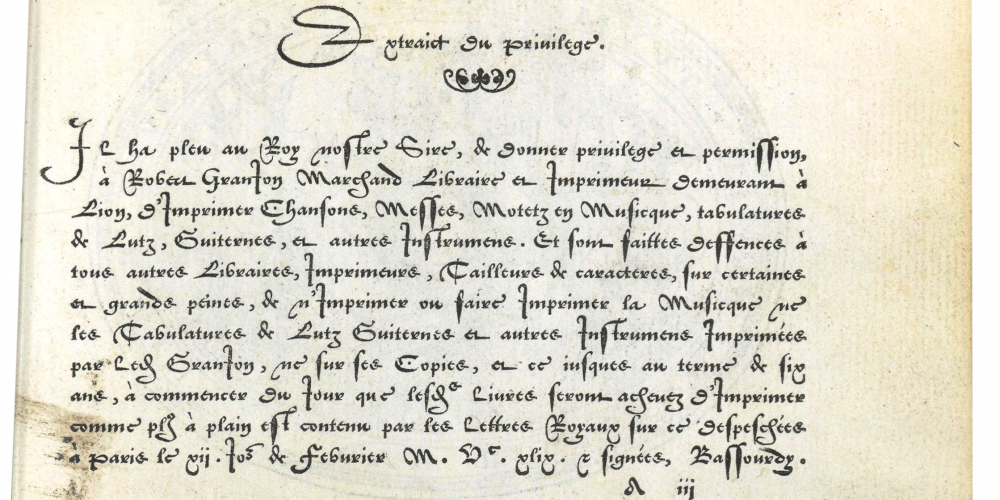 Extraict du privilege.
Il ha pleu au Roy nostre Sire, de donner privilege et permission,
à Robert GranJon Marchand Libraire et Imprimeur demeurant à
Lion, d'Imprimer Chansons, Messes, Motetz en Musicque, tabulatures
de Lutz, Guiternes, et autres Instrumens. Et sont faittes deffences à
tous autres Libraires, Imprimeurs, Tailleurs de caracteres, sur certaines
et grandes peines, de n'Imprimer ou faire Imprimer la Musicque ne
les Tabulatures de Lutz Guiternes et autres Instrumens Imprimées
par Led. GranJon, ne sur ses Copies, et ce iusques au terme de six
ans, à commencer du Jour que lesd.e Livres seront achevez d'Imprimer
comme pl9 à plain est contenu par les Lettres Royaux sur ce despeschées
à Paris le xii. Jor de Febvrier M. Vc. xlix. & signées, Bassourdy.
A iii